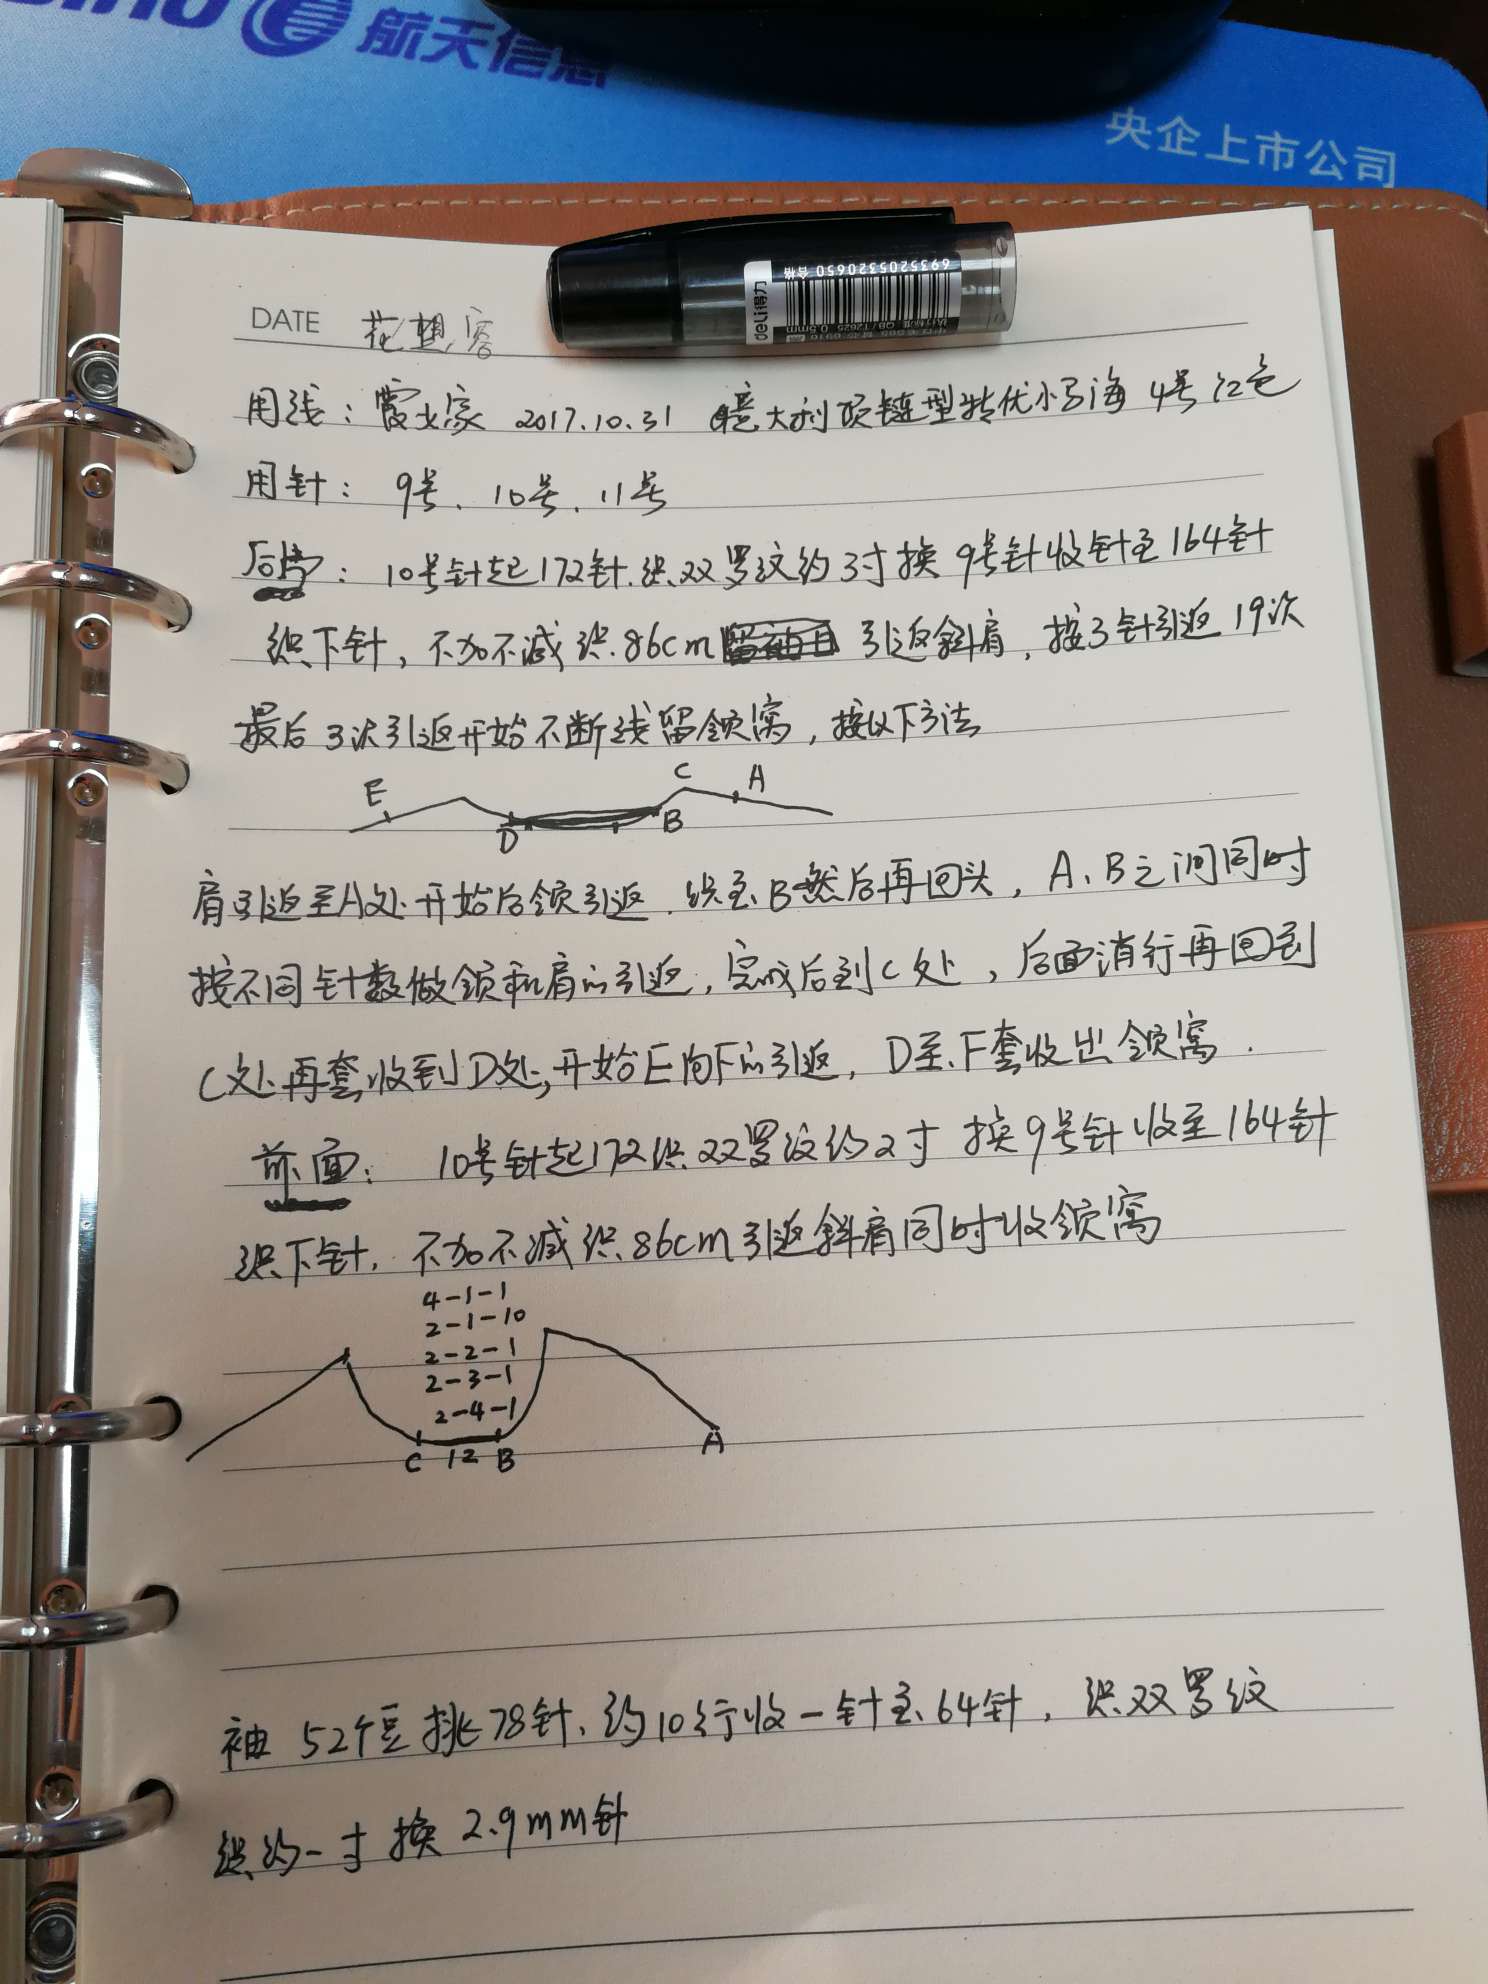 航天信息
央企上市公司
6935205320650 合格
deli得力
0.5mm
DATE 花想容
用线：霞大家 2017.10.31 意大利项链型转优小马海 4号红色
用针：9号、10号、11号
后片：10号针起172针.织双罗纹约3寸换9号针收针至164针
织下针，不加不减织86cm 引返斜肩，按3针引返19次
最后3次引返开始不断线留领窝，按以下方法
E C A
D B
肩引返至A处开始后领引返.织至B然后再回头，A、B之间同时
按不同针数做领和肩的引返，完成后到C处，后面消行再回到
C处再套收到D处，开始E向F的引返，D至F套收出领窝.
前面：10号针起172织双罗纹约2寸 换9号针收至164针
织下针，不加不减织86cm引返斜肩同时收领窝
4-1-1
2-1-10
2-2-1
2-3-1
2-4-1
C 12 B A
袖 52个豆挑78针、约10行收一针至64针，织双罗纹
织约一寸换2.9mm针